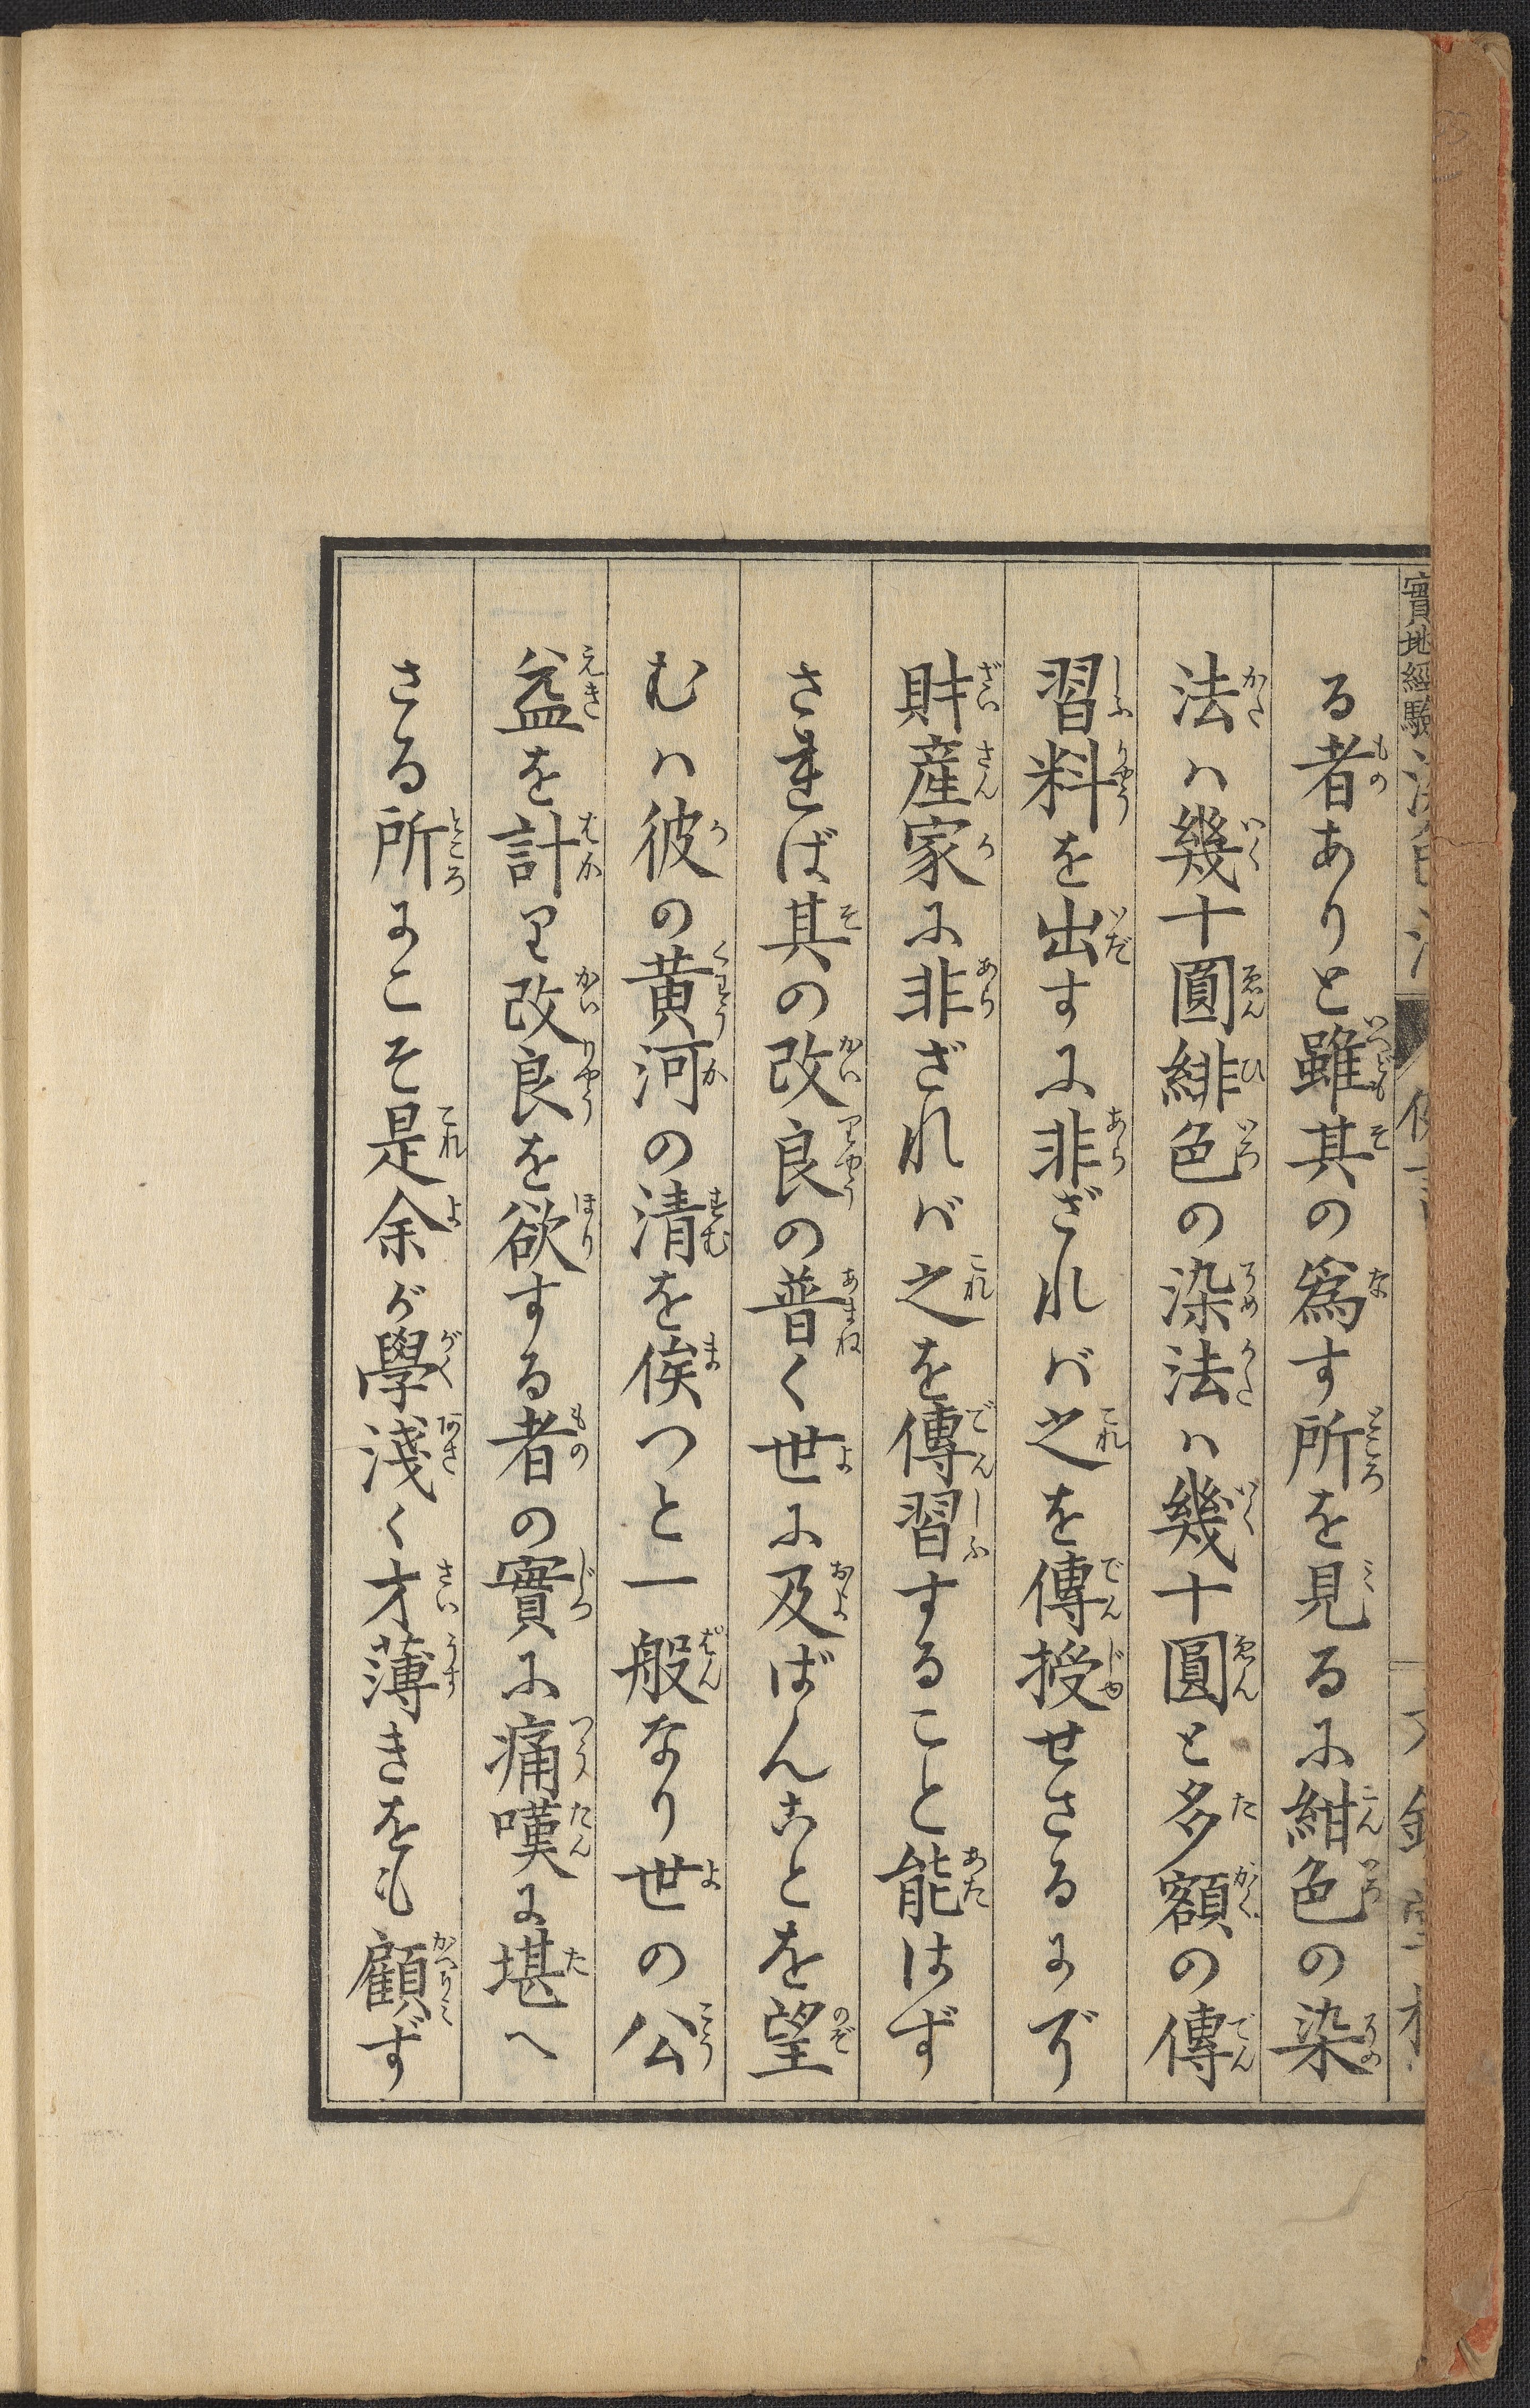 實地經驗
る者ありと雖其の爲す所を見るに紺色の染
法ハ幾十圓緋色の染法ハ幾十圓と多額の傳
習料を出すに非ざれバ之を傳授せさるに「
財産家に非ざれバ之を傳習すること能はず
されば其の改良の普く世に及ばんことを望
むハ彼の黄河の清を俟つと一般なり世の公
益を計り改良を欲する者の實に痛嘆に堪へ
さる所にこそ是余が學淺く才薄きをも顧ず